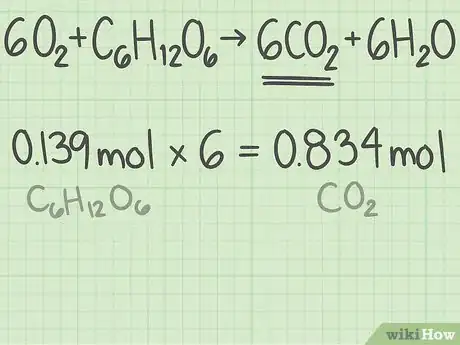 6O₂+C₆H₁₂O₆→6CO₂+6H₂O
0.139 mol × 6 = 0.834 mol
C₆H₁₂O₆ CO₂
wikiHow